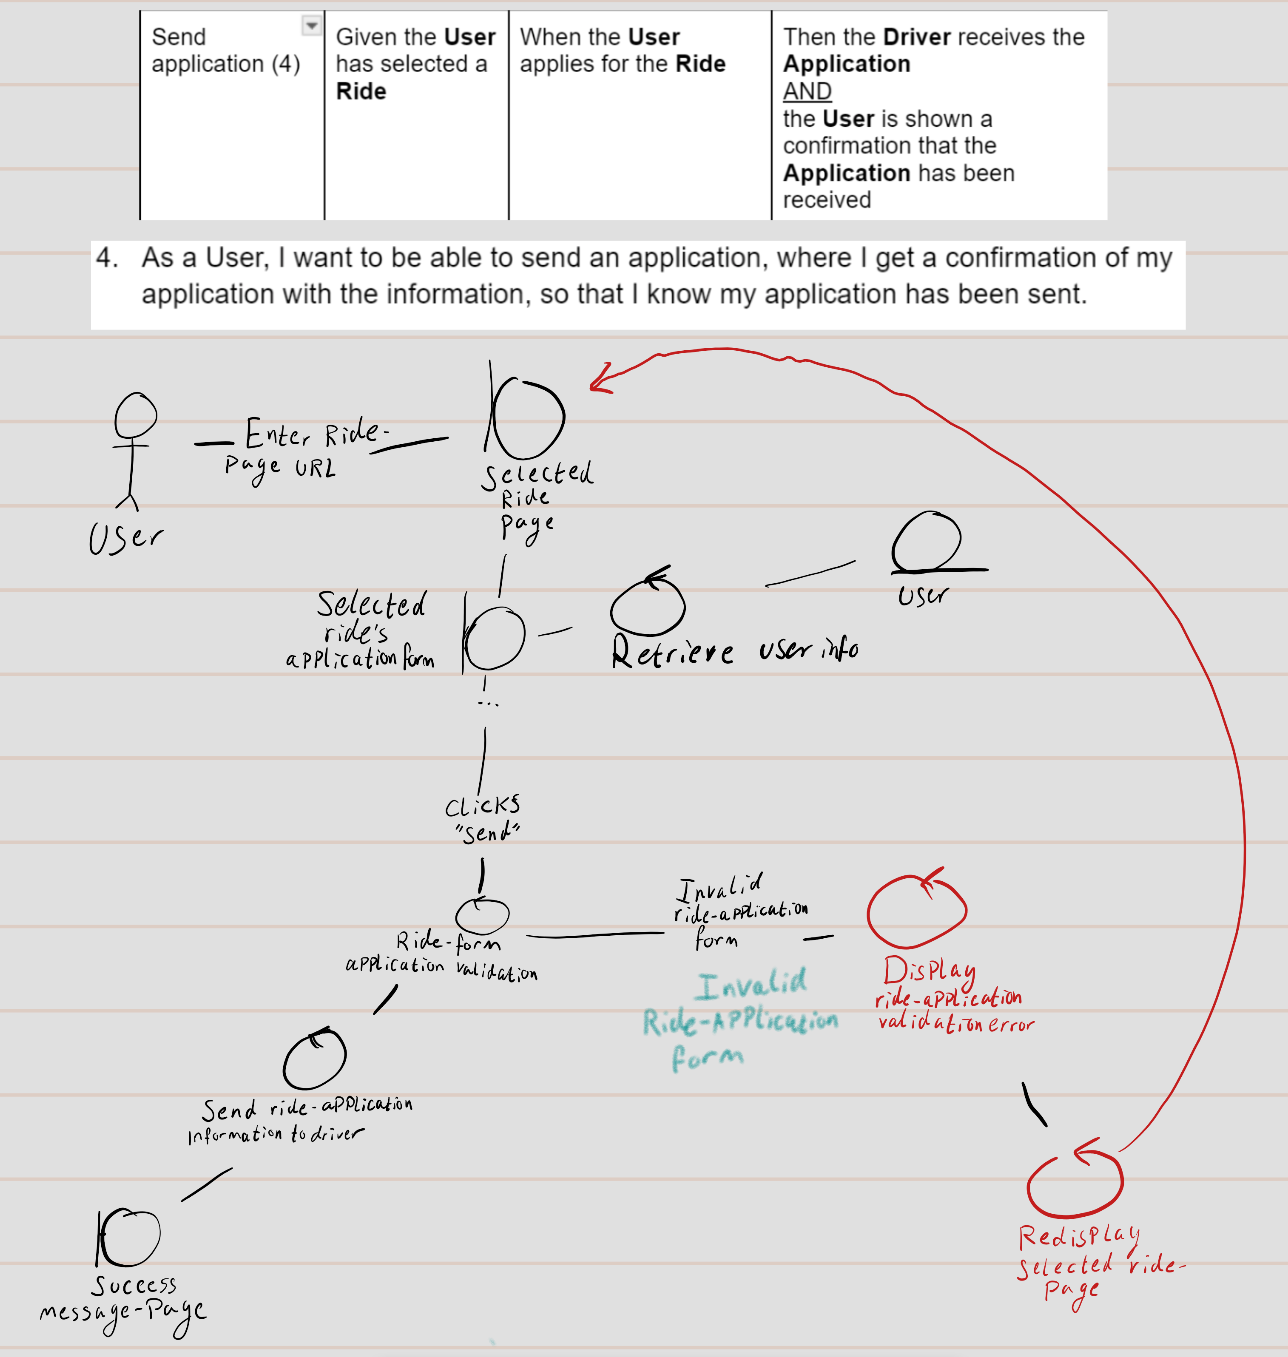 Send
application (4)
Given the User
has selected a
Ride
When the User
applies for the Ride
Then the Driver receives the
Application
AND
the User is shown a
confirmation that the
Application has been
received
4. As a User, I want to be able to send an application, where I get a confirmation of my
application with the information, so that I know my application has been sent.
User
Enter Ride-
Page URL
Selected
Ride
Page
Selected
ride's
application form
Retrieve user info
User
...
Clicks
"Send"
Ride-form
application validation
Invalid
ride-application
form
Invalid
Ride-Application
form
Display
ride-application
validation error
Send ride-application
Information to driver
Success
message-Page
Redisplay
Selected ride-
Page